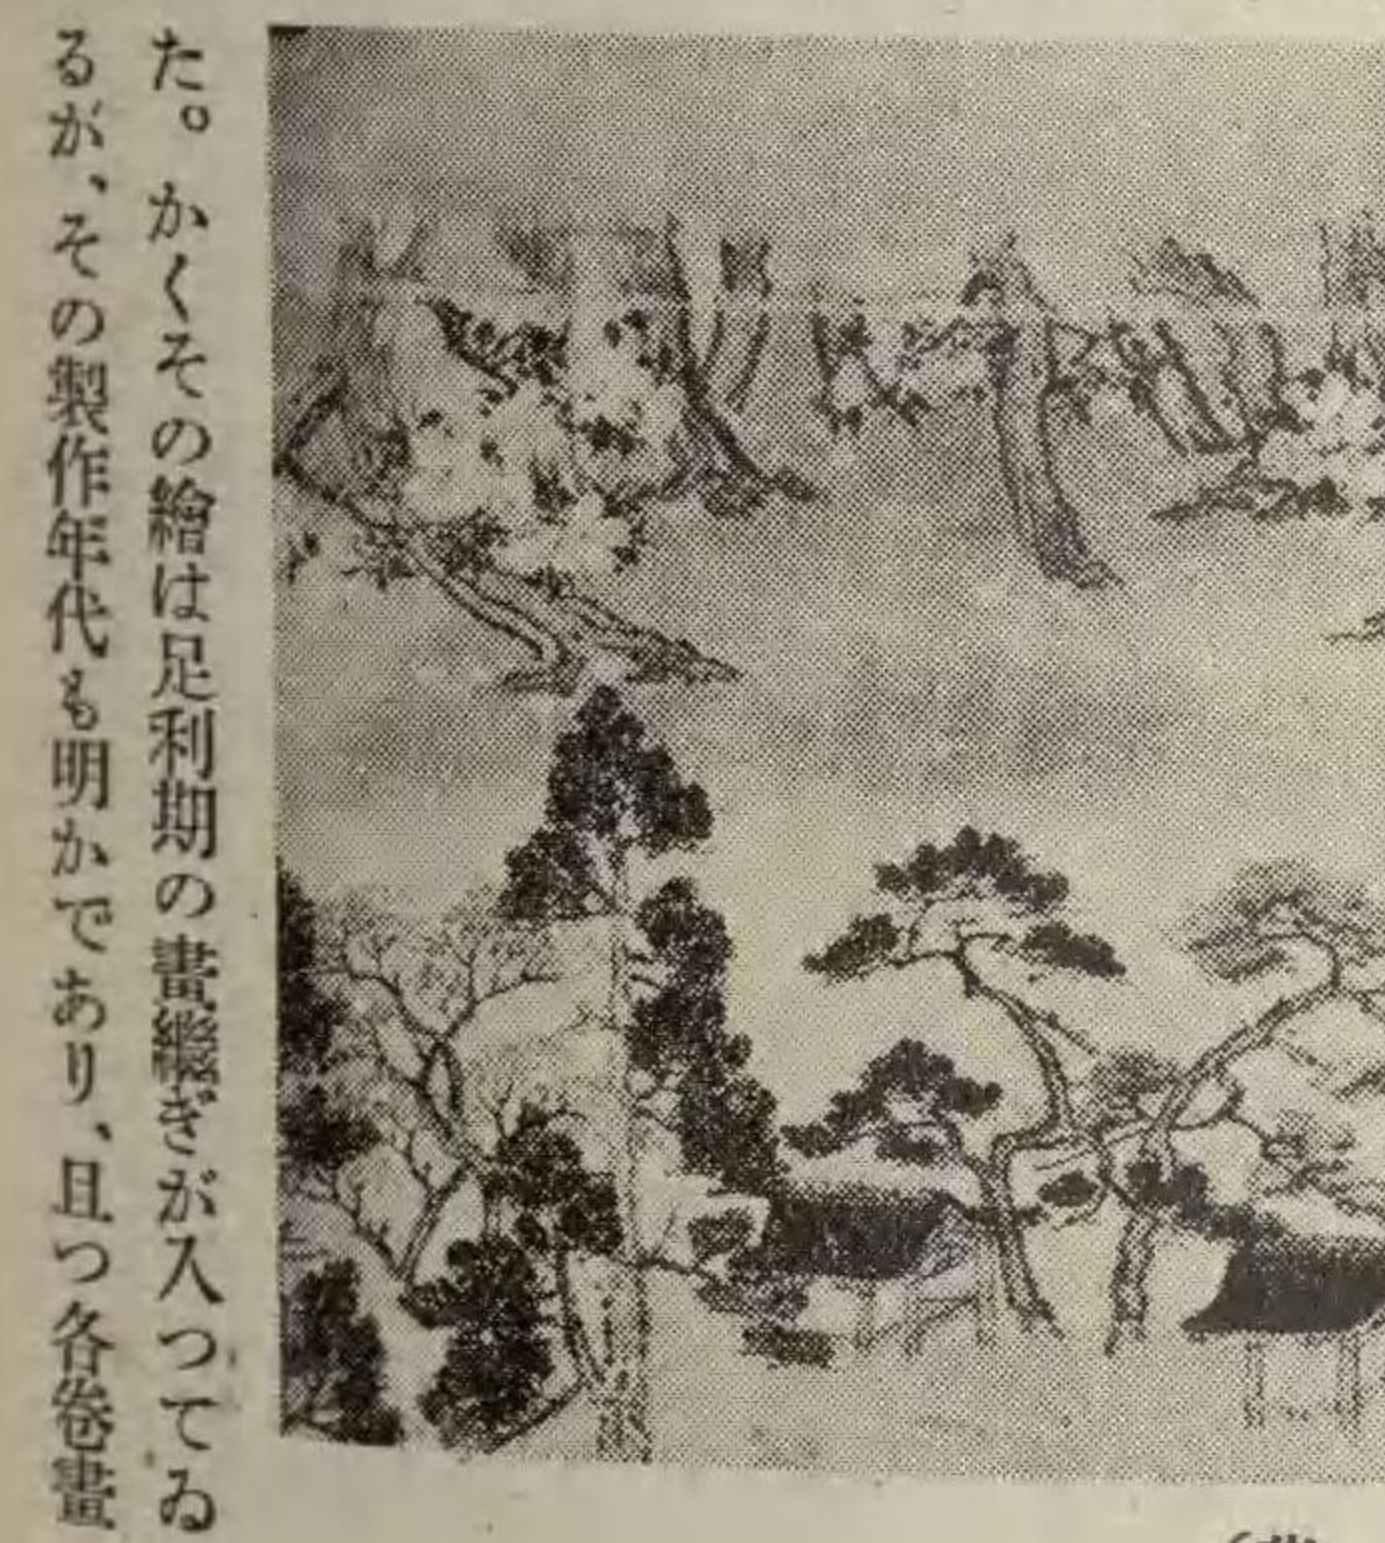 た。かくその繪は足利期の畫繼ぎが入つてゐ
るが、その製作年代も明かであり、且つ各卷畫